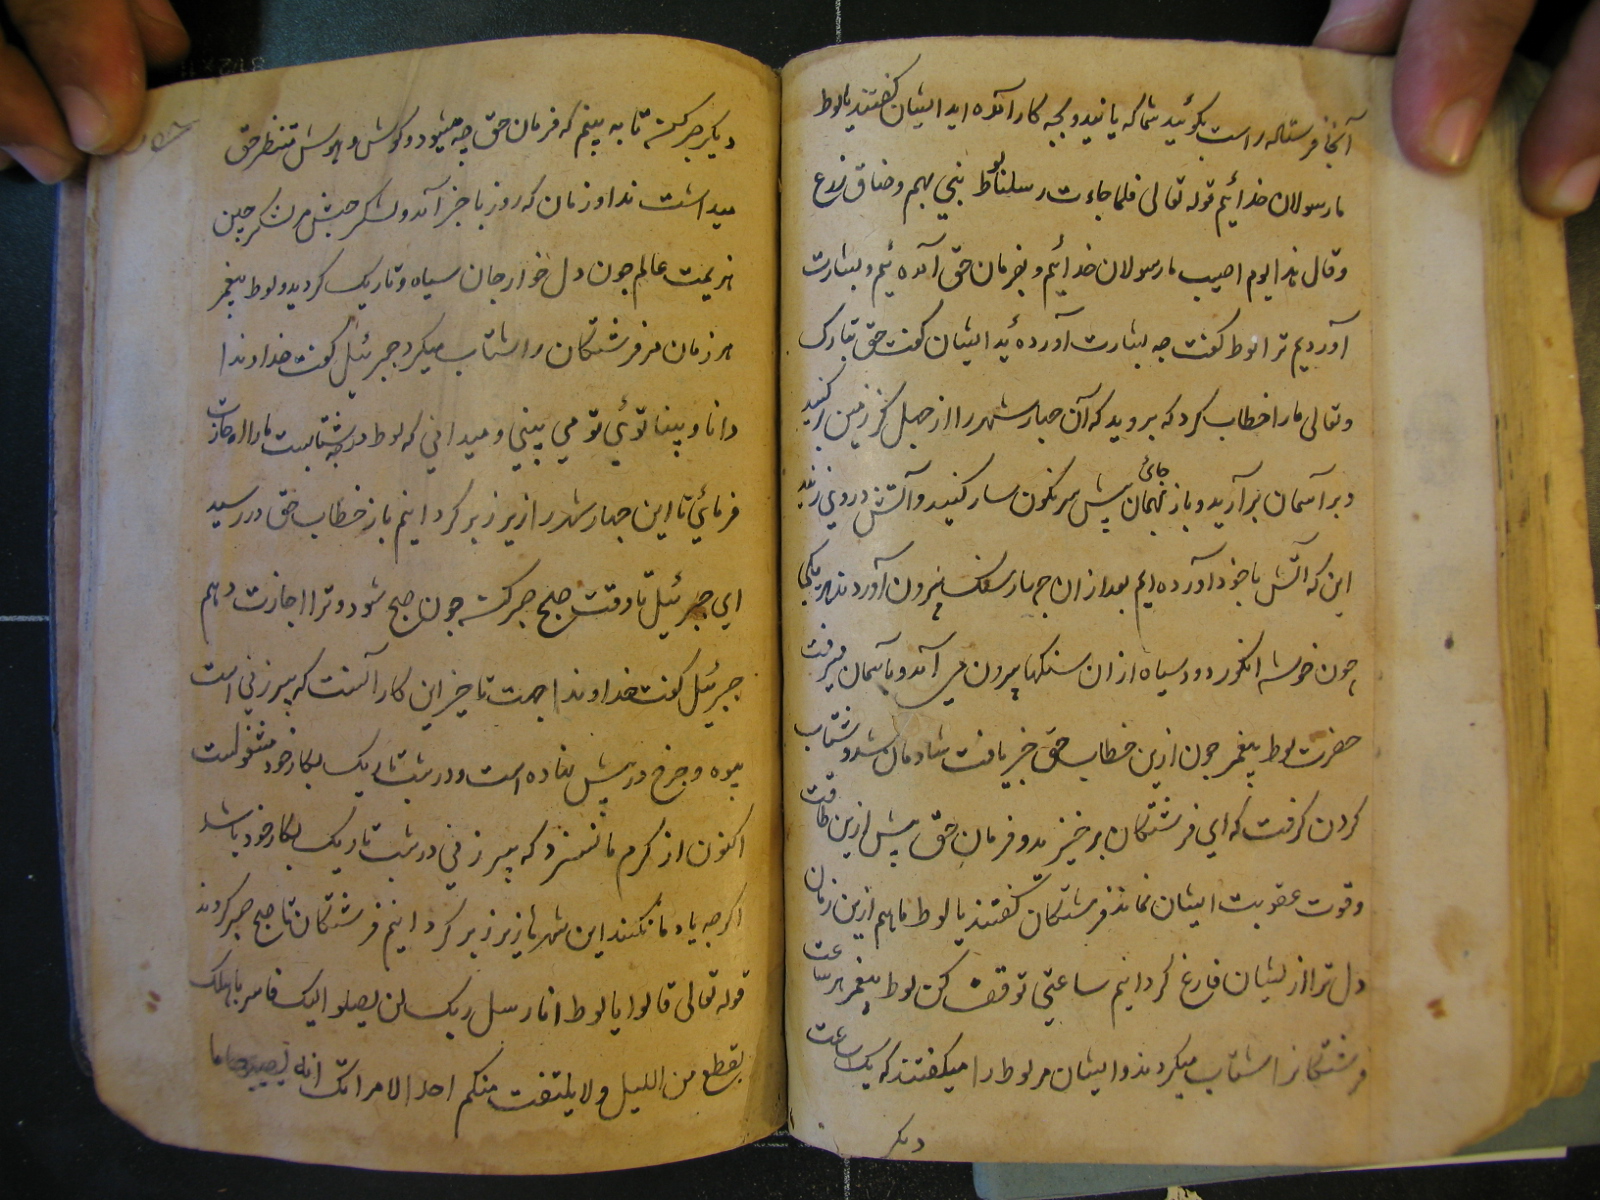 آنجا فرستاده راست بگوئید شما که یانید و بچه کار آمده اید ایشان گفتند یا لوط
ما رسولان خدائیم قوله تعالی فلما جاءت رسلنا لوطا سئ بهم وضاق ذرع
وقال هذا یوم اصیب ما رسولان خدائیم و بفرمان حق آمده ئیم و بشارت
آوردیم ترا لوط گفت چه بشارت آورده ئید ایشان گفت حق تبارک
وتعالی ما را خطاب کرد که بروید که آن چهار شهر را از جبل زمین کنید
و بر آسمان برآرید و باز بهمان جائ پیش سرنکون سار کنید و آتش در وی زنید
این که آتش با خود آورده ایم بعد از ان چهار سنک بیرون آوردند هر یکی
چون خوشه انکور دود سیاه از ان سنکها بیرون می آمد و بآسمان میرفت
حضرت لوط پیغمبر چون ازین خطاب حق خبر یافت شادمان شد و شتاب
کردن کرفت که ای فرشتکان برخیزید و فرمان حق پیش ازین طاقت
وقوت عقوبت ایشان نماند فرشتکان گفتند یا لوط ما هم ازین زمان
دل ترا از یشان فارغ کردانیم ساعتی توقف کن لوط پیغمبر هر ساعت
فرشتکانرا شتاب میکردند و ایشان مر لوط را میکفتند که یک ساعت
دیکر
دیکر صبر کن تا به بینم که فرمان حق چه میشود و کوش و هوش منتظر حق
میداشت نداو زمان که روز باخر آمد و لشکر حبش مر لشکر چین
هزیمت عالم چون دل خوارجان سیاه و تاریک کردید و لوط پیغمبر
هر زمان مر فرشتکان را شتاب میکرد جبرئیل گفت خداوندا
دانا و بینا توئی تو می بینی و میدانی که لوط در چه شتابست ما را اجازت
فرمائی تا این چهار شهر را زیر زبر کردانیم باز خطاب حق در رسید
ای جبرئیل تا وقت صبح صبر کن چون صبح شود و ترا اجازت دهم
جبرئیل گفت خداوندا جهت تاخیر این کار آنست که پیر زنی است
بیوه و چرخ در پیش نهاده است و در شب تاریک بکار خود مشغولست
اکنون از کرم ما نسزد که پیر زنی در شب تاریک بکار خود باشد
اکرچه یاد ما نکند این شهر ها زیر زبر کردانیم فرشتکان تا صبح صبر کردند
قوله تعالی قالوا یا لوط انا رسل ربک لن یصلوا الیک فاسر باهلک
بقطع من اللیل ولا یلتفت منکم احد الا امراتک انه یصیبها ما